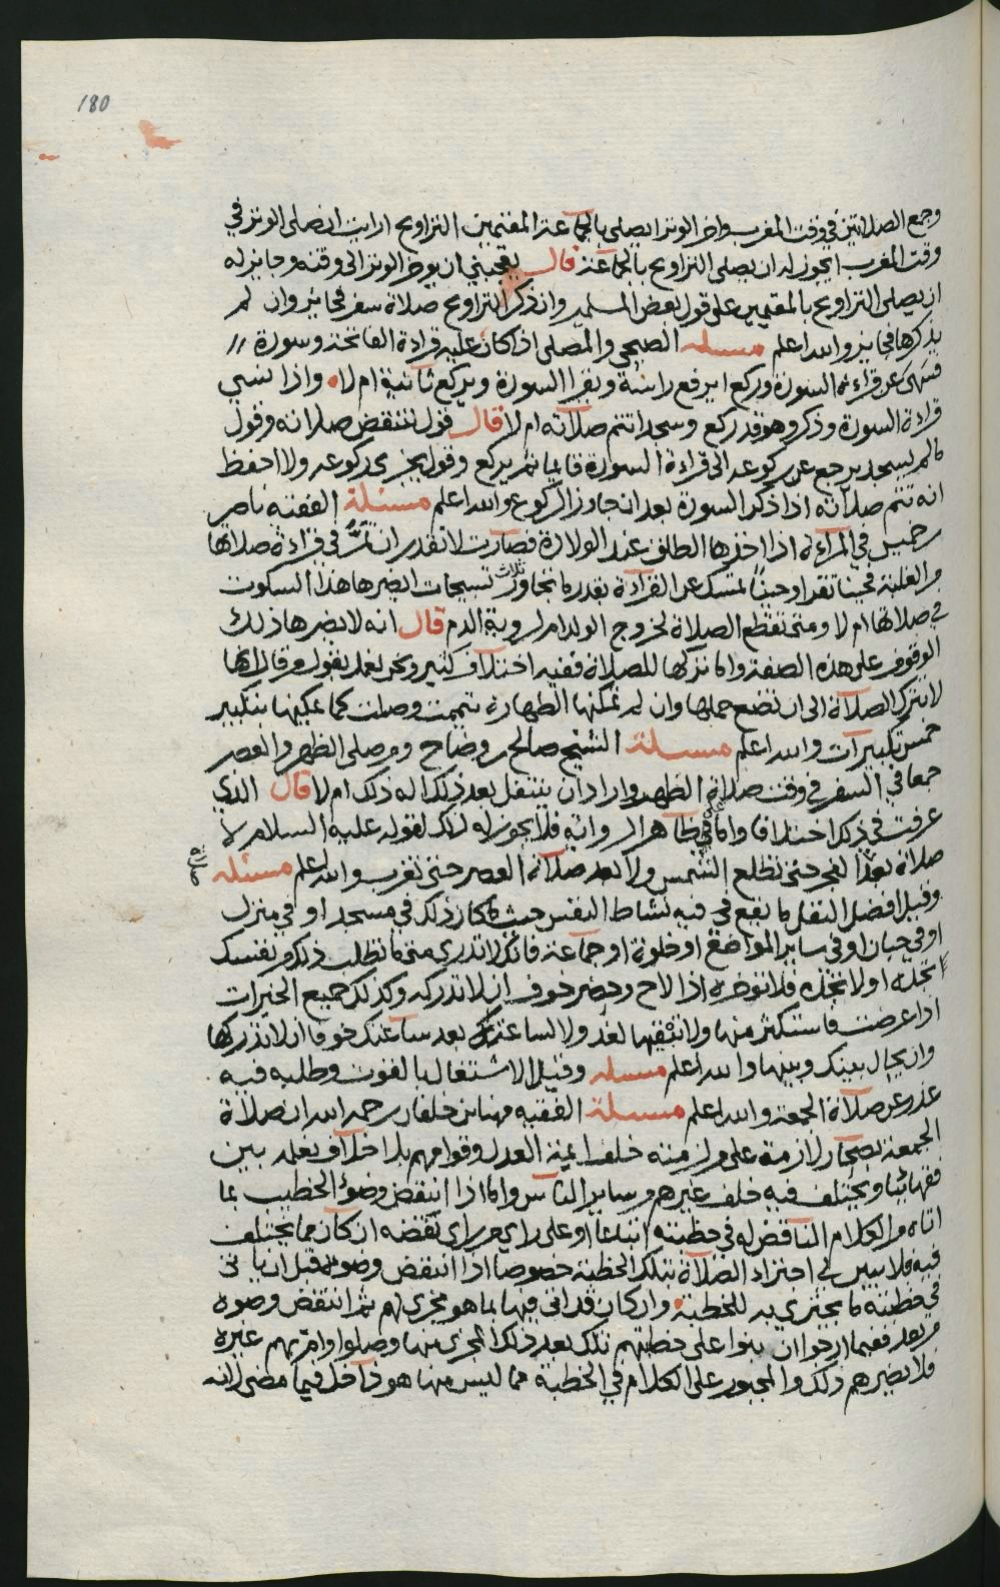 180
وجمع الصلاتين في وقت المغرب واخر الوتر ايصلي بالجماعة المقيمين التراويح ارايت ان صلى الوتر في
وقت المغرب ايجوز له ان يصلي التراويح بالجماعة قال يعجبني ان يوخر الوتر الى وقته وجايز له
ان يصلي التراويح بالمقيمين على قول بعض المسلمين وان ذكر التراويح صلاة سفر فجائز وان لم
يذكرها فجايز والله اعلم مسئله الصبحي والمصلي اذا كان عليه قراءة الفاتحة وسورة //
فسهى عن قراءة السورة وركع ايرفع راسه ويقرا السورة ويركع ثانية ام لا واذا نسي
قراءة السورة وذكر وهو قد ركع وسجد اتتم صلاته ام لا قال قول تنتقض صلاته وقول
مالم يسجد يرجع عن ركوعه الى قراءة السورة قايما ثم يركع وقول يجزي ركوعه ولا احفظ
انه تتم صلاته اذا ذكر السورة بعد ان جاوز الركوع والله اعلم مسئلة الفقيه ناصر
بن خميس في المراة اذا اخذها الطلق عند الولادة فصارت لا تقدر ان تمر في قراءة صلاتها
من الغلبة فحينا تقرا وحينًا تمسك عن القراءة بقدر ما تجاوز ثلاث تسبيحات ايضرها هذا السكوت
في صلاتها ام لا ومتى تقطع الصلاة لخروج الولد ام لروية الدم قال انه لا يضرها ذلك
الوقوف على هذه الصفة واما تركها للصلاة ففيه اختلاف كثير ونحن نعمل بقول من قال انها
لا تترك الصلاة الى ان تضع حملها وان لم تمكنها الطهارة تيممت وصلت كما يمكنها بتكبير
خمس تكبيرات والله اعلم مسئلة الشيخ صالح بن وضاح ومن صلى الظهر والعصر
جمعا في السفر في وقت صلاة الظهر واراد ان يتنفل بعد ذلك اله ذلك ام لا قال الذي
عرفت في ذلك اختلافا واما في ظاهر الرواية فلا يجوز له ذلك لقوله عليه السلام لا
صلاة بعد الفجر حتى تطلع الشمس ولا بعد صلاة العصر حتى تغرب والله اعلم مسئله
وقيل افضل النفل ما يقع في فيه نشاط النفس حيث ما كان ذلك في مسجد او في منزل
او في جبان او في ساير المواضع او خلوة او جماعة فانك لا تدري متى ما تطلب ذلك من نفسك
اتجده او لا تجده فلا تؤخره اذا لاح وحضر خوف ان لا تدركه وكذلك جميع الخيرات
اذا عرضت فاستكثر منها ولا تبقيها لغد ولا لساعة بعد ساعتك خوفا ان لا تدركها
وان يحال بينك وبينها والله اعلم مسئله وقيل الاشتغال بالقوت وطلبه فيه
عذر عن صلاة الجمعة والله اعلم مسئلة الفقيه مهنا بن خلفان رحمه الله ان صلاة
الجمعة بصحار لازمة على من لزمته خلف ايمة العدل وقوامهم بلا اختلاف نعلمه بين
فقهائنا ويختلف فيه خلف غيرهم من ساير الناس واما اذا انتقض وضوء الخطيب بما
اتاه من الكلام الناقض له في خطبته ابتداعًا او على راي من راى نقضه ان كان مما يختلف
فيه فلا يبين لي اجتزاء الصلاة بتلك الخطبة خصوصا اذا انتقض وضوءه قبل ان ياتي
في خطبته ما يجتزي به للخطبة وان كان قد اتى فيها بما هو مجزي لهم ثم انتقض وضوه
من بعد ففيما ارجو ان بنوا على خطبتهم تلك بعد ذلك المجزي منها وصلوا وامّ بهم غيره
فلا يضرهم ذلك والمجبور على الكلام في الخطبة مما ليس منها هو داخل فيما مضى لانه